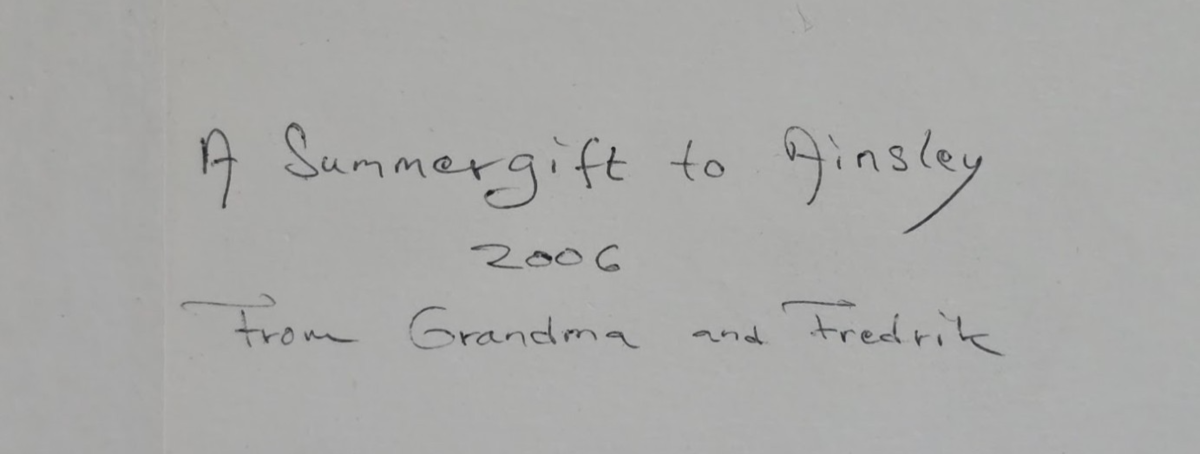 A Summergift to Ainsley
2006
From Grandma and Fredrik